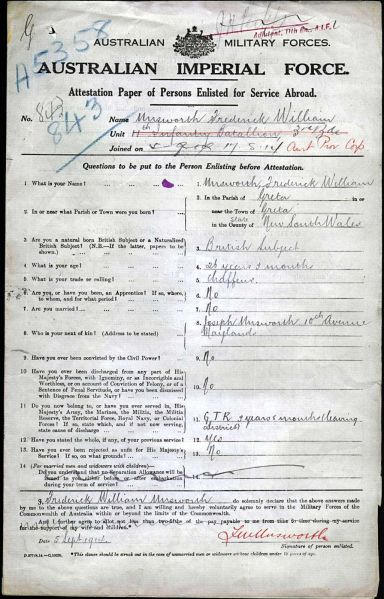 A5358
Adjutant, 11th Bn. A.I.F.
AUSTRALIAN MILITARY FORCES.
AUSTRALIAN IMPERIAL FORCE.
Attestation Paper of Persons Enlisted for Service Abroad.
No. 843 Name Unsworth Frederick William
843 Unit 11th Infantry Battalion 3rd Bde
Joined on 17.8.14
Questions to be put to the Person Enlisting before Attestation.
1. What is your Name? 1. Unsworth Frederick William
2. In or near what Parish or Town were you born? 2. In the Parish of Greta in or near the Town of Greta
State New South Wales
3. Are you a natural born British Subject or a Naturalized British Subject? (N.B.—If the latter, papers to be shown). 3. British Subject
4. What is your age? 4. years months
5. What is your trade or calling? 5. Chaffeur
6. Are you, or have you been, an Apprentice? If so, where, to whom, and for what period? 6. No
7. Are you married? 7. No
8. Who is your next of kin? (Address to be stated) 8. Joseph Unsworth 10th Avenue
Maylands
9. Have you ever been convicted by the Civil Power? 9. No
10. Have you ever been discharged from any part of His Majesty's Forces, with Ignominy, or as Incorrigible and Worthless, or on account of Conviction of Felony, or of a Sentence of Penal Servitude, or have you been dismissed with Disgrace from the Navy? 10. No
11. Do you now belong to, or have you ever served in, His Majesty's Army, the Marines, the Militia, the Militia Reserve, the Territorial Force, Royal Navy, or Colonial Forces? If so, state which, and if not now serving, state cause of discharge 11. G.T.R. years months (leaving district)
12. Have you stated the whole, if any, of your previous service? 12. Yes
13. Have you ever been rejected as unfit for His Majesty's Service? If so, on what grounds? 13. No
14. (For married men and widowers with children)
Do you understand that no Separation Allowance will be issued to you either before or after embarkation during your term of service? 14.
I, Frederick William Unsworth do solemnly declare that the above answers made
by me to the above questions are true, and I am willing and hereby voluntarily agree to serve in the Military Forces of the
Commonwealth of Australia within or beyond the limits of the Commonwealth.
And I further agree to allot not less than two-fifths of the pay payable to me from time to time during my service
for the support of my wife and children.
Date 5 Sept 1914 F.W. Unsworth
Signature of person enlisted.
*This clause should be struck out in the case of unmarried men or widowers without children under 18 years of age.